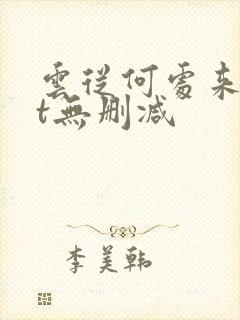 雲從何處来
t無刪减
李美韩